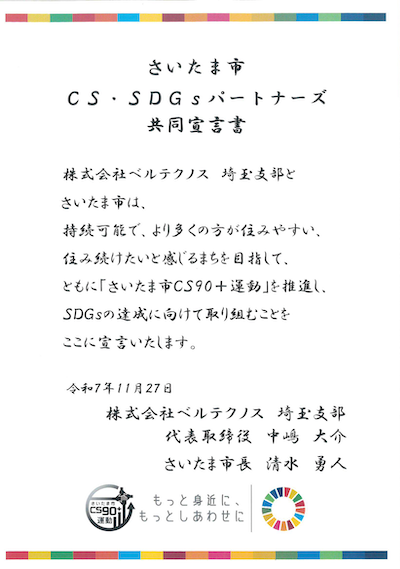 さいたま市
CS・SDGsパートナーズ
共同宣言書
株式会社ベルテクノス 埼玉支部と
さいたま市は、
持続可能で、より多くの方が住みやすい、
住み続けたいと感じるまちを目指して、
ともに「さいたま市CS90+運動」を推進し、
SDGsの達成に向けて取り組むことを
ここに宣言いたします。
令和7年11月27日
株式会社ベルテクノス 埼玉支部
代表取締役 中嶋 大介
さいたま市長 清水 勇人
さいたま市
CS90+
運動
もっと身近に、
もっとしあわせに